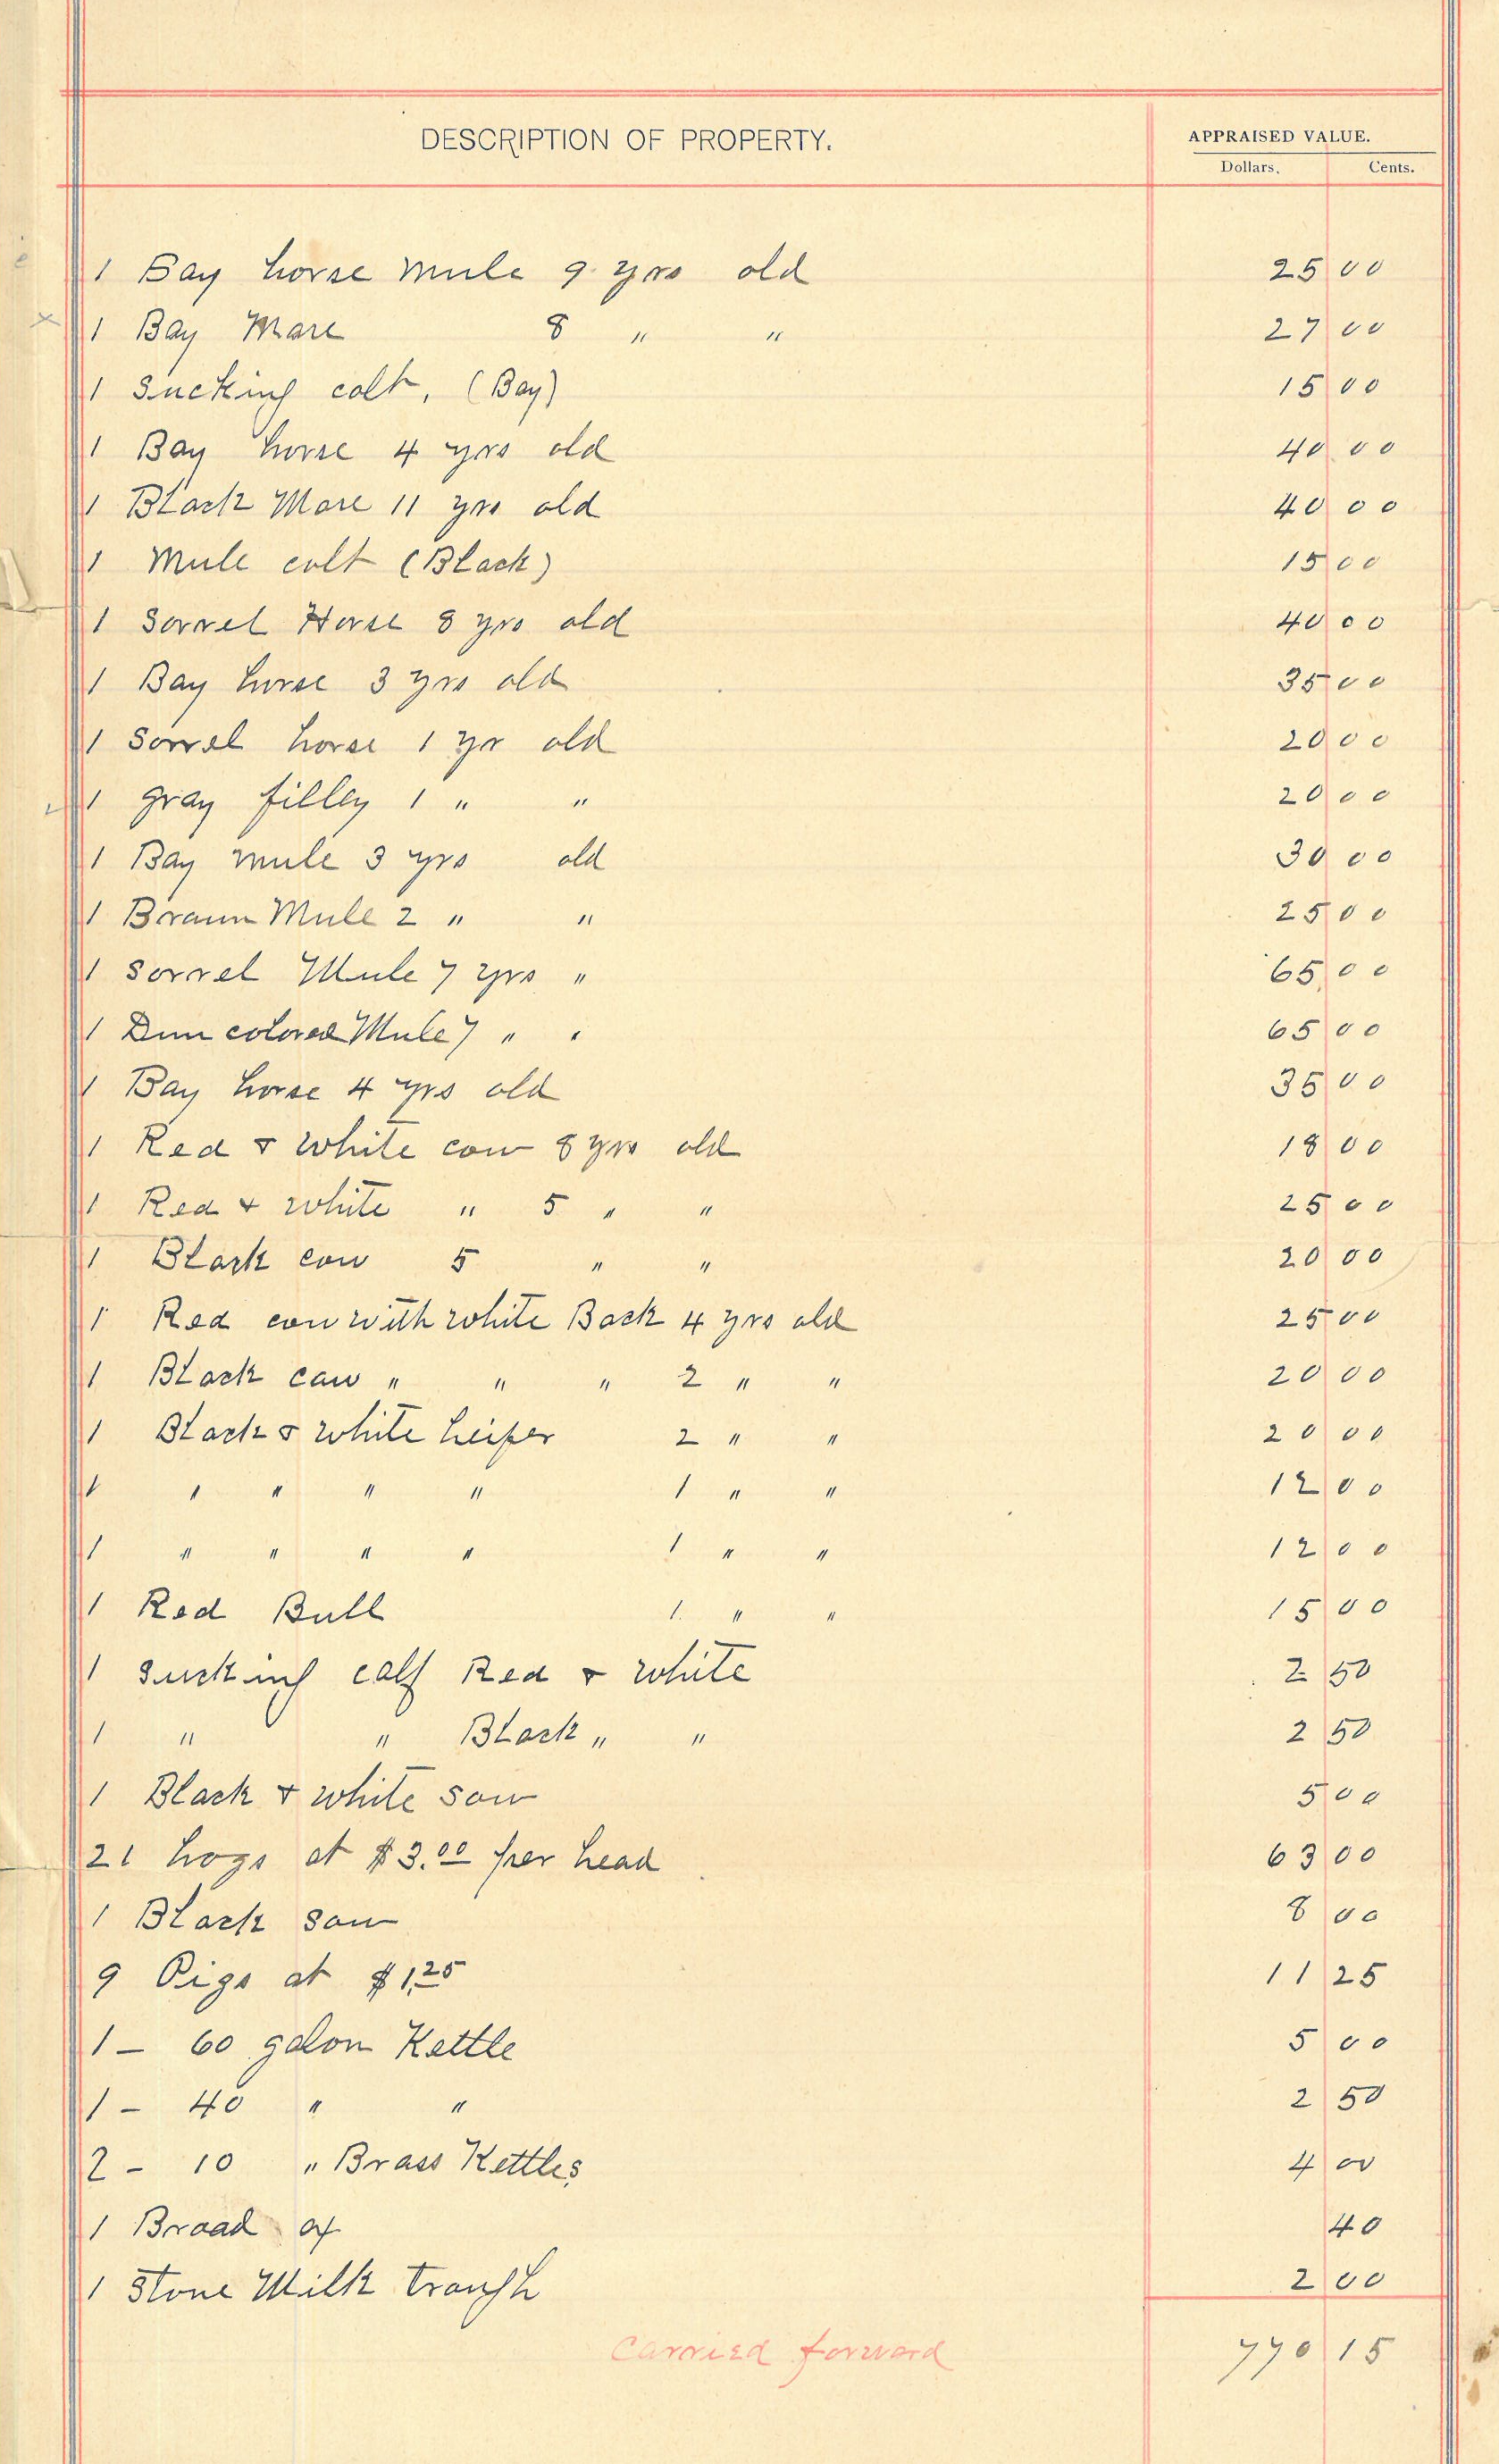 DESCRIPTION OF PROPERTY.
APPRAISED VALUE.
Dollars. Cents.
1 Bay horse mule 9 yrs old 25 00
x 1 Bay Mare 8 " " 27 00
1 Sucking colt, (Bay) 15 00
1 Bay horse 4 yrs old 40 00
1 Black Mare 11 yrs old 40 00
1 Mule colt (Black) 15 00
1 Sorrel Horse 8 yrs old 40 00
1 Bay horse 3 yrs old 35 00
1 Sorral horse 1 yr old 20 00
1 gray filley 1 " " 20 00
1 Bay mule 3 yrs old 30 00
1 Braun Mule 2 " " 25 00
1 Sorrel Mule 7 yrs " 65 00
1 Dun colored Mule 7 " " 65 00
1 Bay horse 4 yrs old 35 00
1 Red & White cow 8 yrs old 18 00
1 Red & white " 5 " " 25 00
1 Black cow 5 " " 20 00
1 Red cow with white Back 4 yrs old 25 00
1 Black caw " " " 2 " " 20 00
1 Black & White heifer 2 " " 20 00
1 " " " " 1 " " 12 00
1 " " " " 1 " " 12 00
1 Red Bull 1. " " 15 00
1 sucking calf Red & white 2 50
1 " " Black " " 2 50
1 Black & white sow 5 00
21 hogs at $3.00 per head 63 00
1 Black sow 8 00
9 Pigs at $1.25 11 25
1 – 60 galon Kettle 5 00
1 – 40 " " 2 50
2 – 10 " Brass Kettles 4 00
1 Broad ax 40
1 Stone Milk trough 2 00
Carried forward 770 15